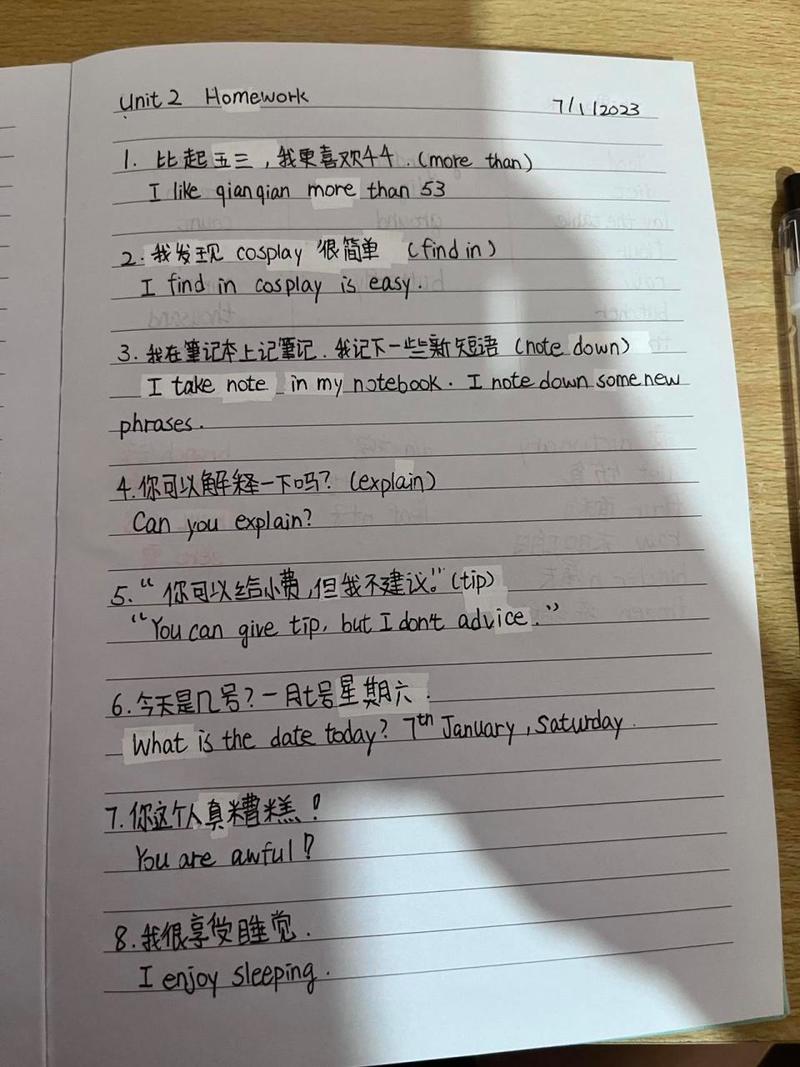 Unit 2 Homework 7/1/2023
1. 比起五三，我更喜欢44.(more than)
I like qianqian more than 53
2. 我发现 cosplay 很简单 (find in)
I find in cosplay is easy.
3. 我在筆记本上记筆记. 我记下一些新短语 (note down)
I take note in my notebook. I note down some new
phrases.
4. 你可以解释一下吗? (explain)
Can you explain?
5. “你可以给小费,但我不建议。”(tip)
“You can give tip, but I don't advice.”
6. 今天是几号? 一月七号星期六.
What is the date today? 7th January, Saturday.
7. 你这个人真糟糕!
You are awful?
8. 我很享受睡觉.
I enjoy sleeping.